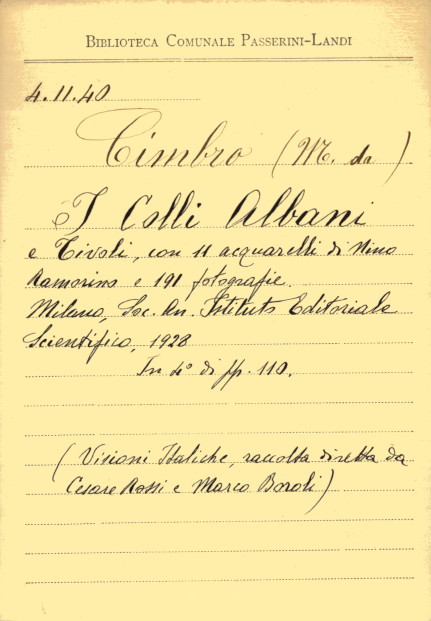 BIBLIOTECA COMUNALE PASSERINI-LANDI
4.11.40
Cimbro (M. da)
I Colli Albani
e Tivoli, con 11 acquarelli di Nino
Ramorino e 191 fotografie.
Milano, Soc. An. Istituto Editoriale
Scientifico, 1928
In 4° di pp. 110.
(Visioni Italiche, raccolta diretta da
Cesare Rossi e Marco Boroli)